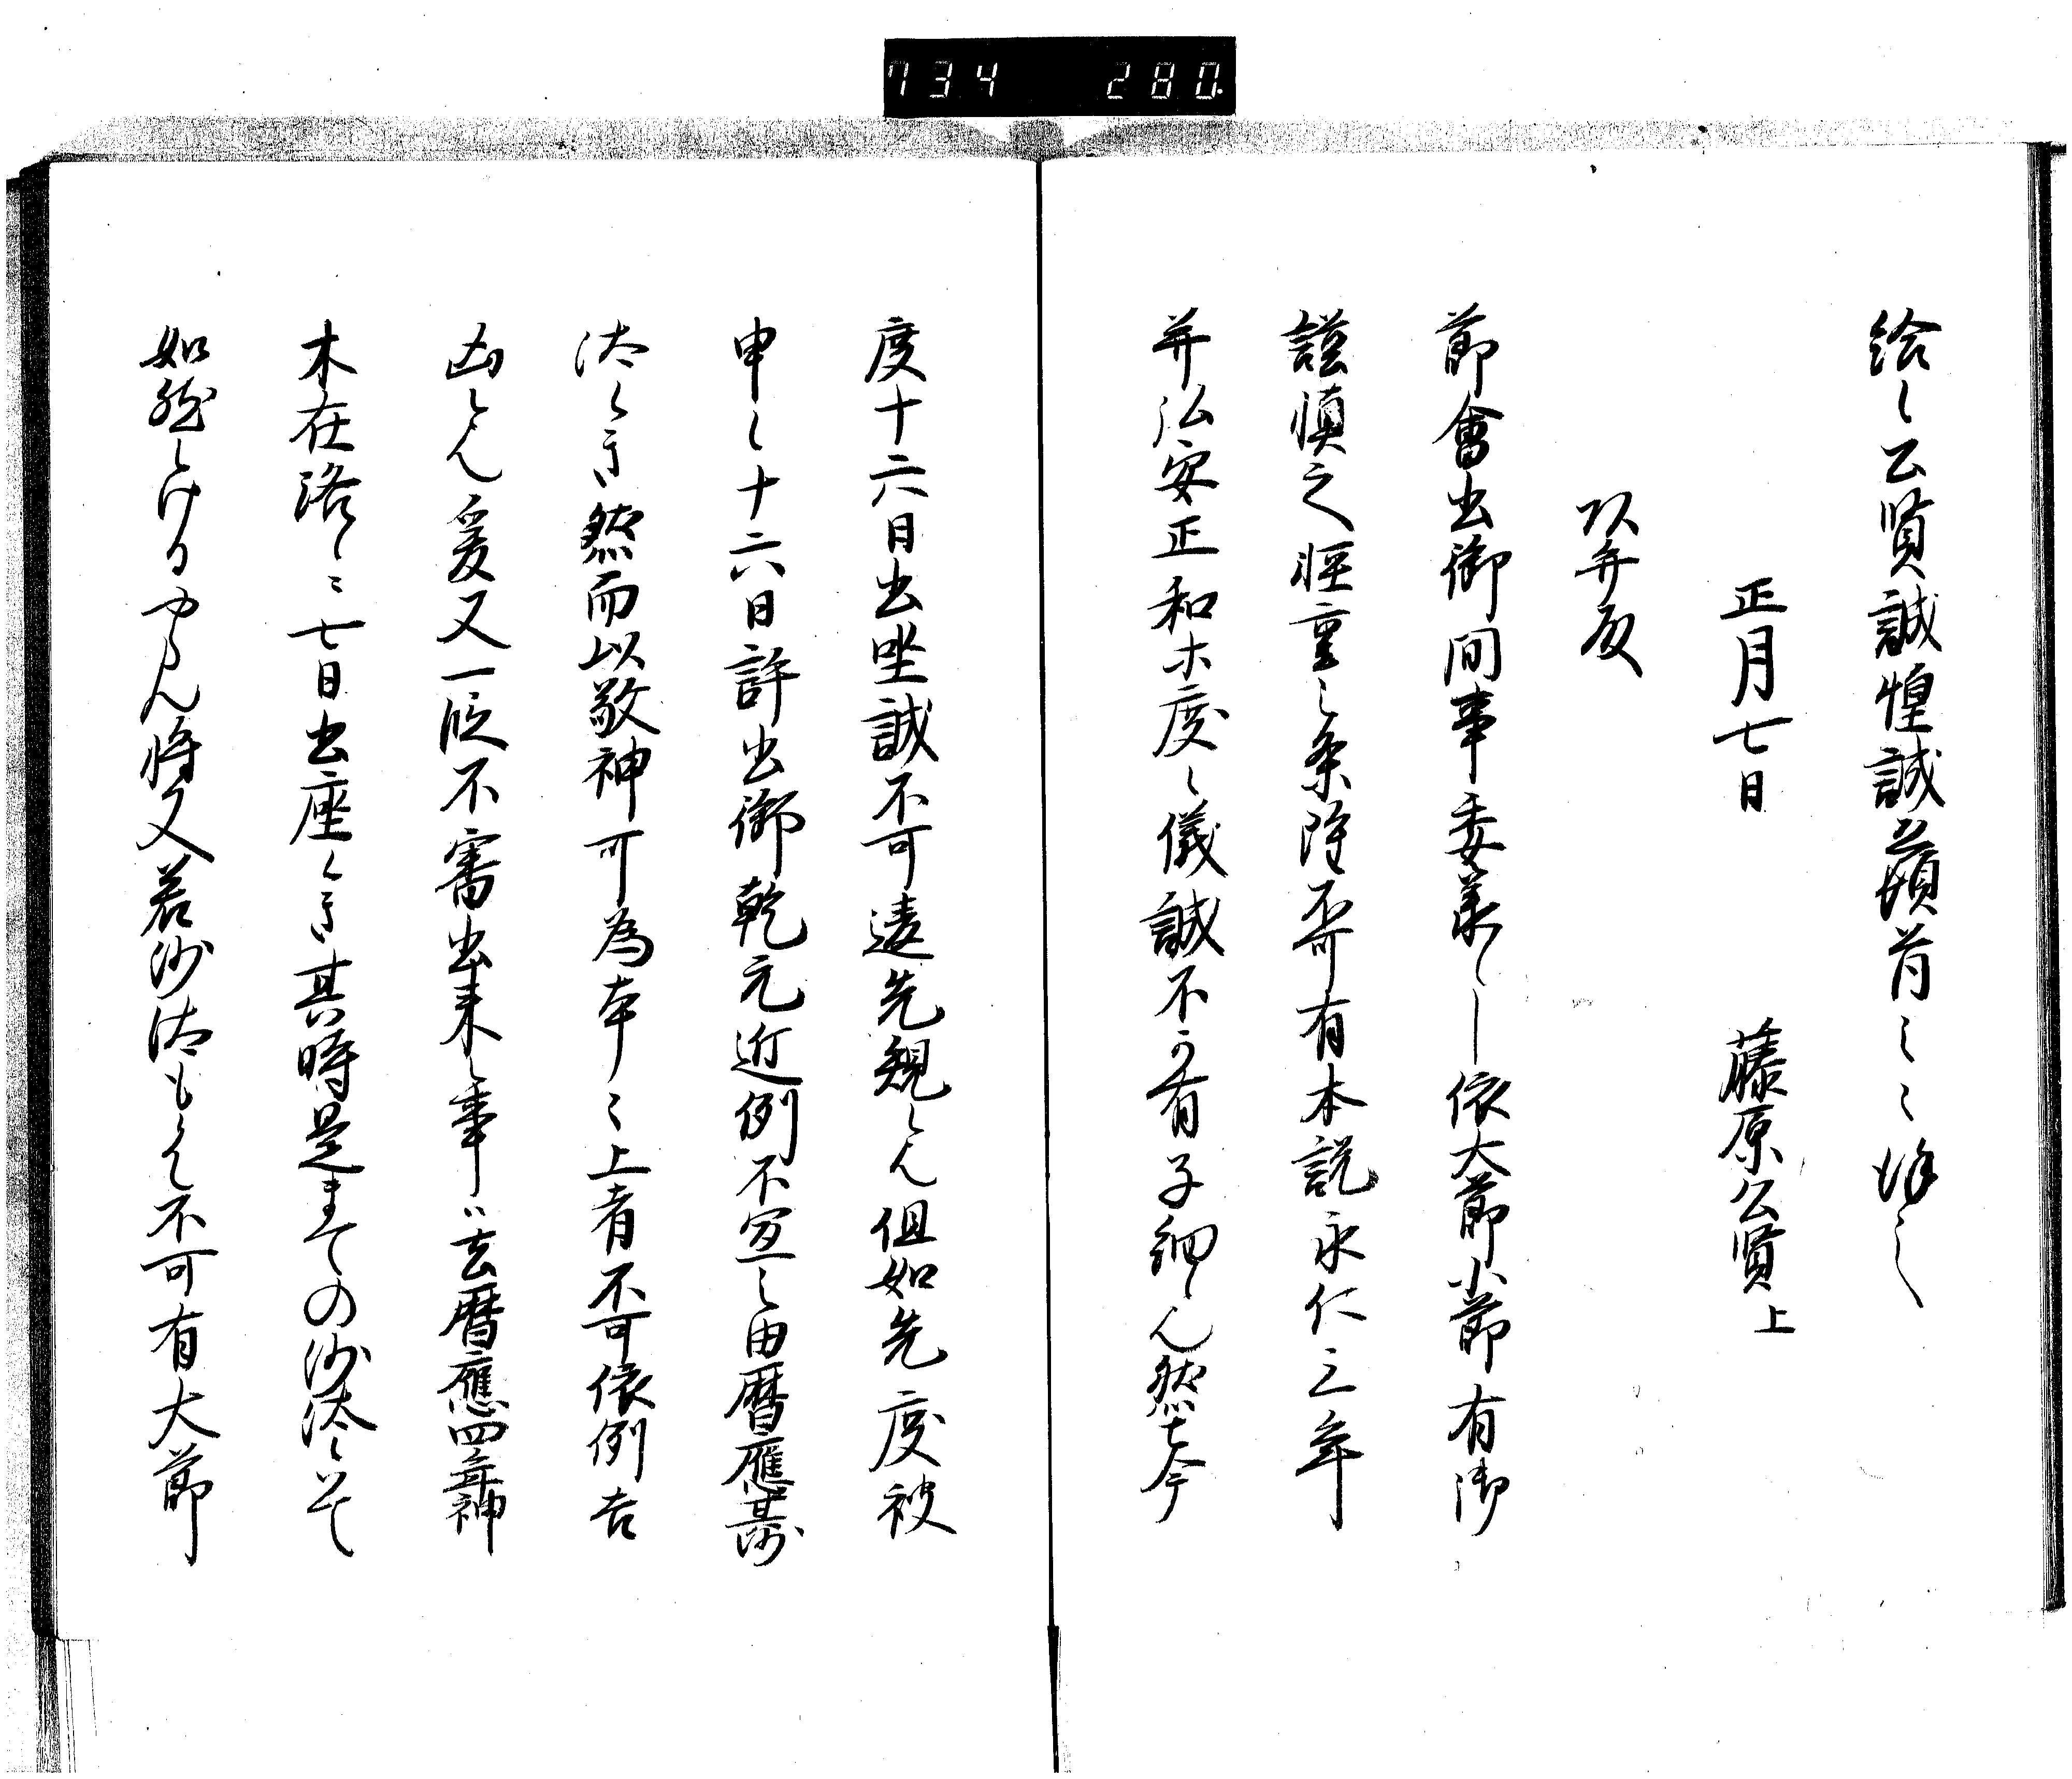 734 280
給之公賢誠惶誠恐頓首々々謹言
正月七日 藤原公賢上
以弁殿
節會出御間事委承候了依大節小節有御
謹慎之軽重之条随不可有本説永仁三年
并弘安正和等度之儀誠不可有子細候然者今
度十六日出坐誠不可違先規候但如先度被
申之十六日許出御乾元近例不宜之由暦應其沙
汰候き然而以敬神可為本之上者不可依例吉
凶候爰又一段不審出来之事候去暦應四年神
木在洛之七日出座候き其時是まての沙汰候はて
如然候けるやらん将又若沙汰も候て不可有大節